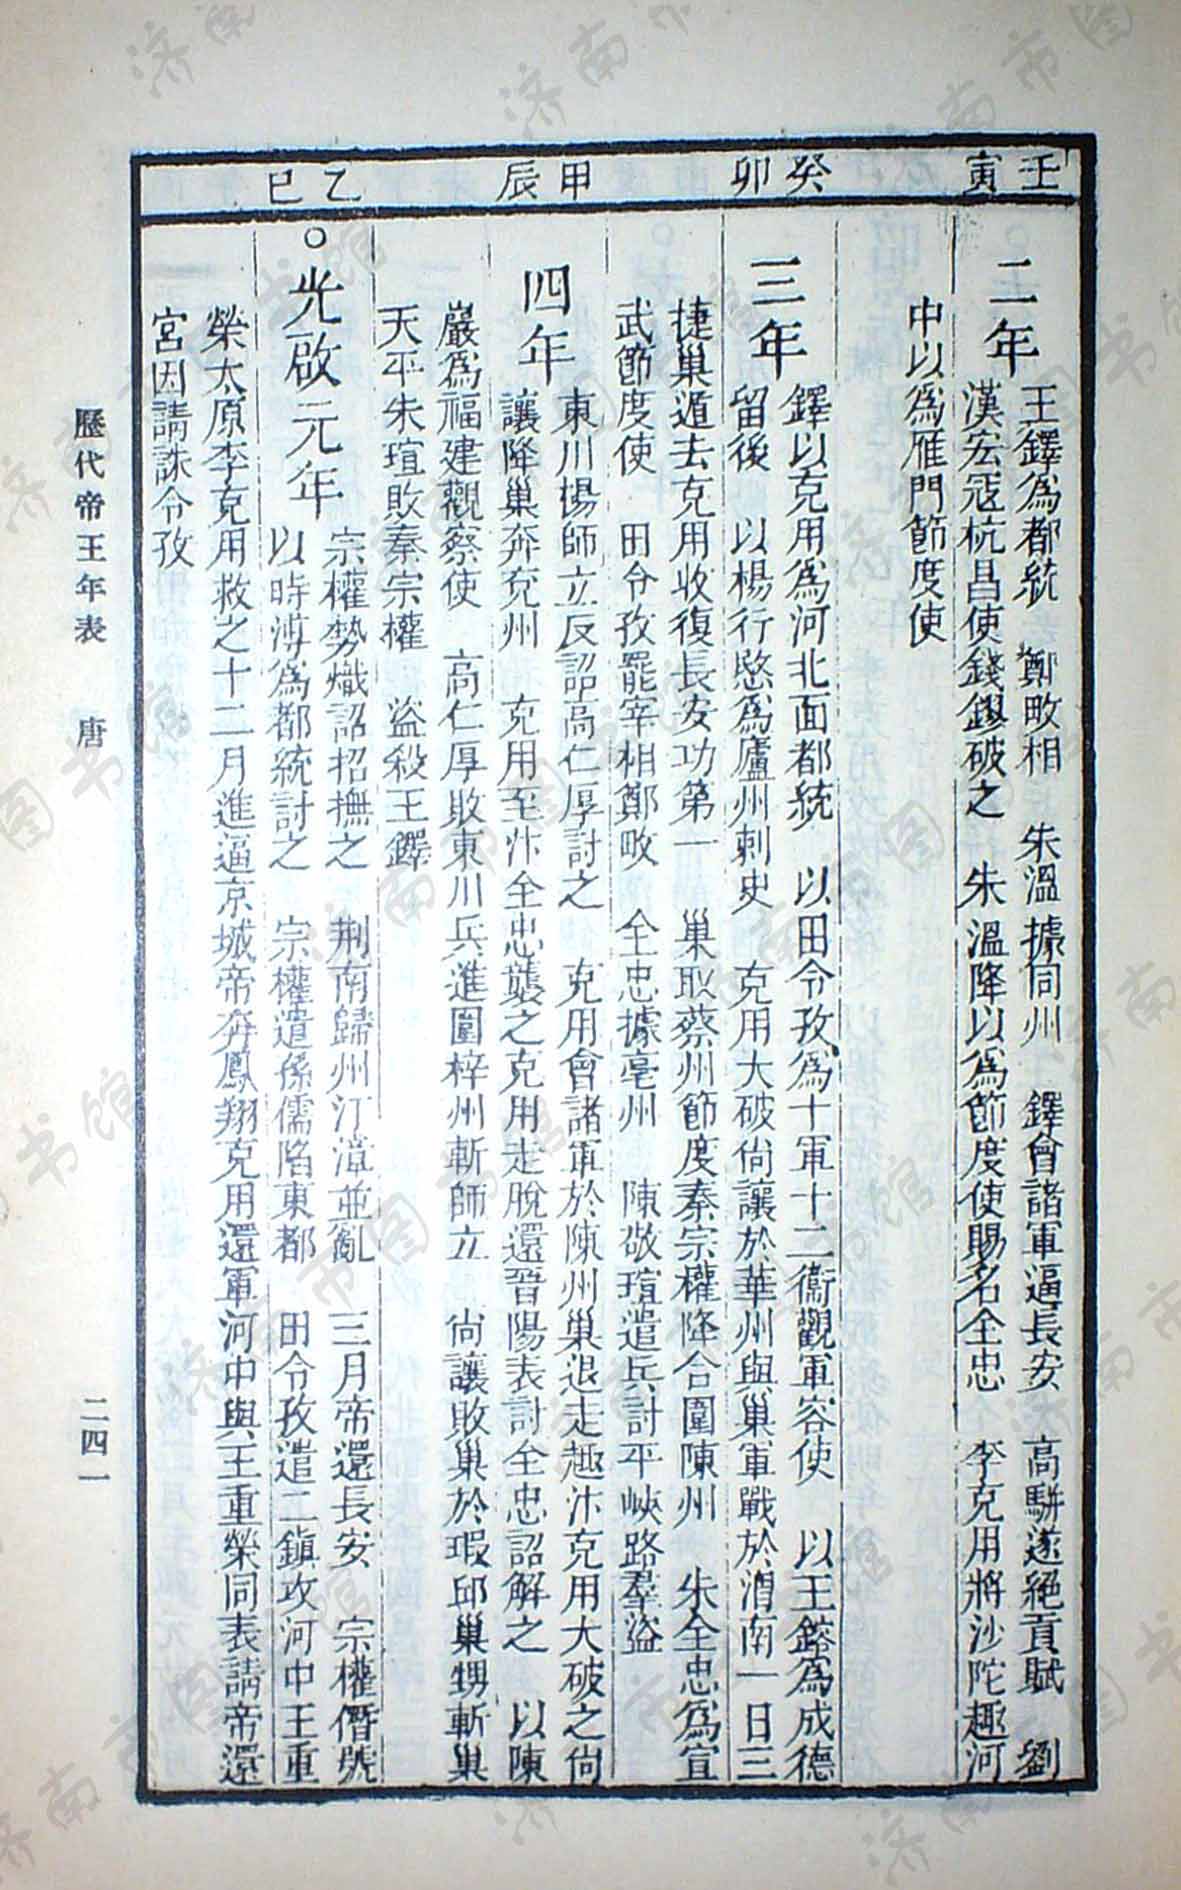 壬寅
癸卯
甲辰
乙巳
二年
王鐸爲都統　鄭畋相　朱溫據同州　鐸會諸軍逼長安　高駢遂絕貢賦　劉
漢宏寇杭昌使錢鏐破之　朱溫降以爲節度使賜名全忠　李克用將沙陀趣河
中以爲雁門節度使
三年
鐸以克用爲河北面都統　以田令孜爲十軍十二衞觀軍容使　以王鎔爲成德
留後　以楊行愍爲廬州刺史　克用大破尙讓於華州與巢軍戰於渭南一日三
捷巢遁去克用收復長安功第一　巢取蔡州節度秦宗權降合圍陳州　朱全忠爲宣
武節度使　田令孜罷宰相鄭畋　全忠據亳州　陳敬瑄遣兵討平峽路羣盜
四年
東川楊師立反詔高仁厚討之　克用會諸軍於陳州巢退走趣汴克用大破之尙
讓降巢奔兗州　克用至汴全忠襲之克用走脫還晉陽表討全忠詔解之　以陳
巖爲福建觀察使　高仁厚敗東川兵進圍梓州斬師立　尙讓敗巢於瑕邱巢甥斬巢
天平朱瑄敗秦宗權　盜殺王鐸
○光啟元年
宗權勢熾詔招撫之　荆南歸州汀漳並亂　三月帝還長安　宗權僭號
以時溥爲都統討之　宗權遣孫儒陷東都　田令孜遣二鎭攻河中王重
榮太原李克用救之十二月進逼京城帝奔鳳翔克用還軍河中與王重榮同表請帝還
宮因請誅令孜
歷代帝王年表　唐
二四一